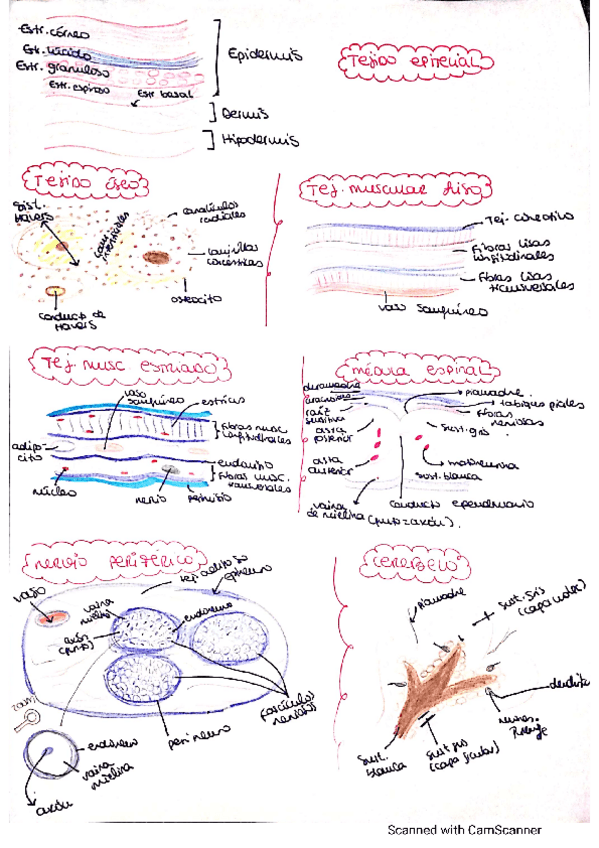 Estr. córneo
Estr. lúcido
Estr. granuloso
Estr. espinoso
Estr basal
Epidermis
Dermis
Hipodermis
Tejido epitelial
Tejido óseo
Sist. Havers
canalículos
radiales
osteocito
conducto de
Havers
Tej. muscular liso
Tej. conectivo
Fibras lisas
longitudinales
Fibras lisas
transversales
vaso sanguíneo
Tej musc estriado
vaso
sanguíneo
estrías
fibras musc
longitudinales
adipo-
cito
endomisio
fibras musc.
transversales
núcleo
nervio
perimisio
médula espinal
duramadre
aracnoides
raíz
sensitiva
asta
posterior
asta
anterior
vaina
de mielina
(punto=axón).
conducto ependimario
piamadre
tabiques piales
fibras
nerviosas
sust.gris
sust. blanca
nervio periférico
vaso
tej adiposo
epineuro
vaina
mielina
axón
(punto)
endoneuro
perineuro
fascículos
nerviosos
zoom
endoneuro
vaina
mielina
axón
cerebelo
piamadre
sust. gris
(capa molec)
dendrita
neuro.
Purkinje
sust.
blanca
sust gris
Scanned with CamScanner